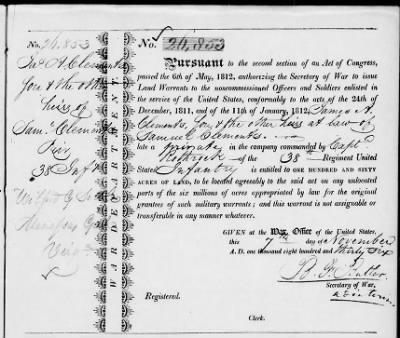 No. 26,853
Jas A. Clements
Son & the other
heirs of
Sam. Clements
38 Inf.t
WAR DEPARTMENT
No. 26,853
Pursuant to the second section of an Act of Congress,
passed the 6th of May, 1812, authorizing the Secretary of War to issue
Land Warrants to the noncommissioned Officers and Soldiers enlisted
in the service of the United States, conformably to the acts of the 24th of
December, 1811, and of the 11th of January, 1812, James A
Clements, Son & the other heirs at law of
Samuel Clements.
late a private in the company commanded by Capt.
of the 38th Regiment United
States Infantry is entitled to ONE HUNDRED AND SIXTY
ACRES OF LAND, to be located agreeably to the said act on any unlocated
parts of the six millions of acres appropriated by law for the original
grantees of such military warrants; and this warrant is not assignable or
transferable in any manner whatever.
GIVEN at the War Office of the United States,
this 7th day of November
A. D. one thousand eight hundred and thirty Six
B. F. Butler
Secretary of War,
ad interim
Registered.
Clerk.